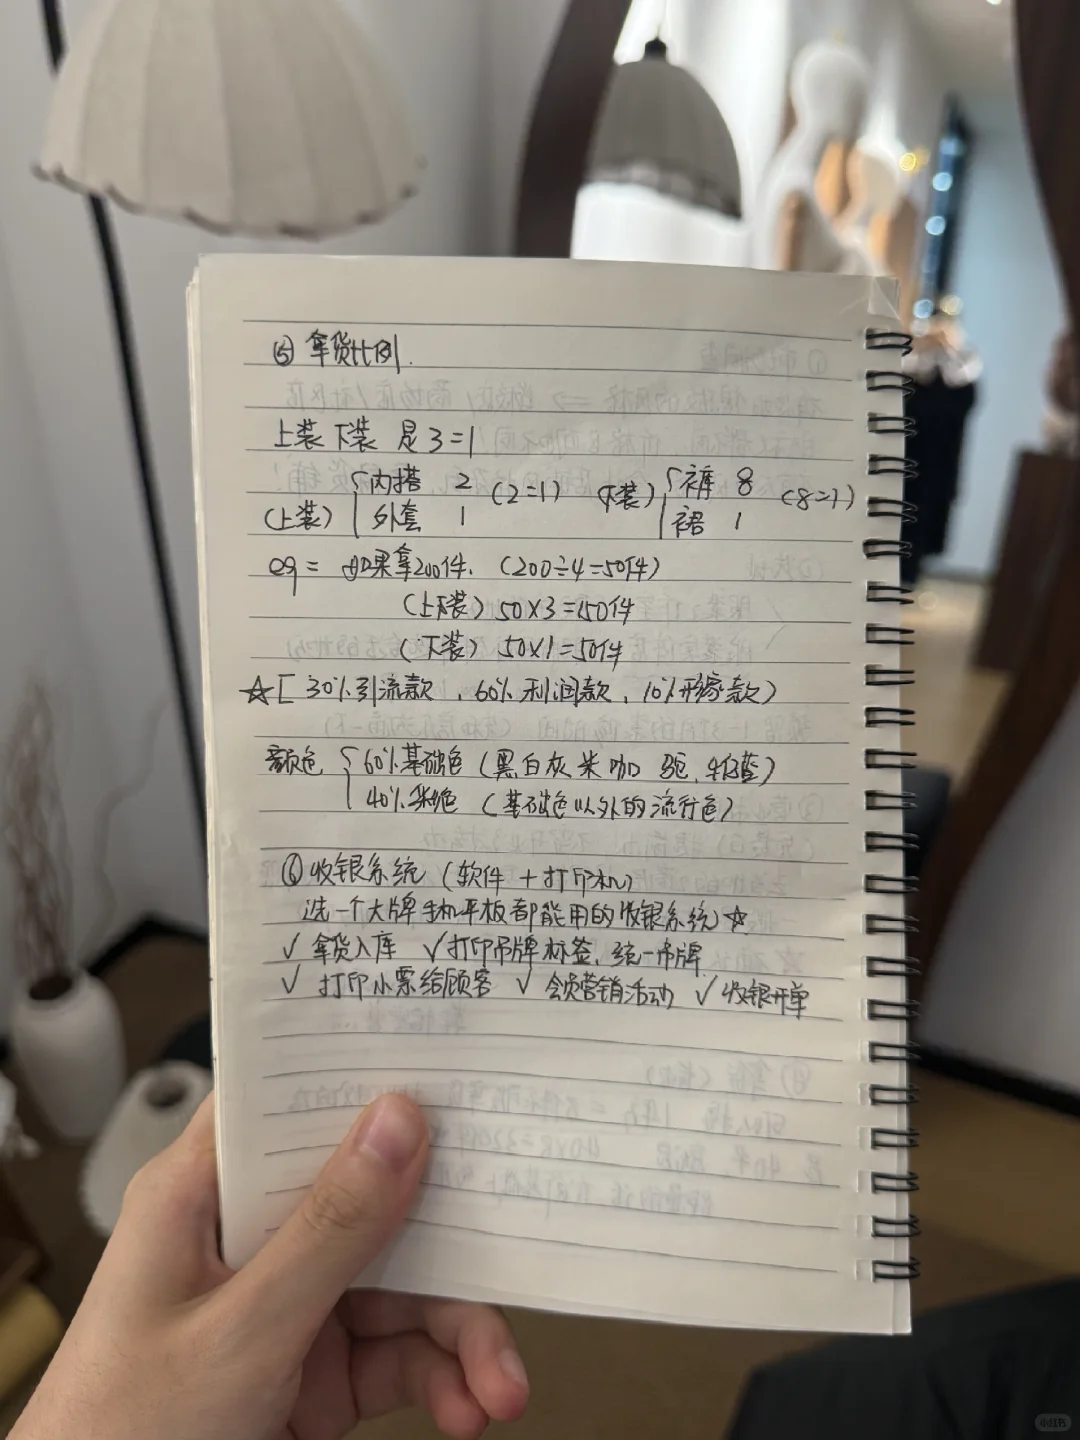 ⑤ 拿货比例.
上装下装 是3=1
(上装) { 内搭 2 外套 1 (2=1) (下装) { 裤 8 裙 1 (8=1)
eg= 如果拿200件. (200÷4=50件)
(上装) 50×3=150件
(下装) 50×1=50件
☆[30%引流款,60%利润款,10%形象款)
颜色 { 60%基础色(黑白灰米咖 驼,牛仔蓝)
40%彩色 (基础色以外的流行色)
⑥ 收银系统 (软件 + 打印机)
选一个大牌手机平板都能用的收银系统)☆
√ 拿货入库 √打印吊牌标签,统一吊牌
√ 打印小票给顾客 √ 会员营销活动 √ 收银开单
小红书